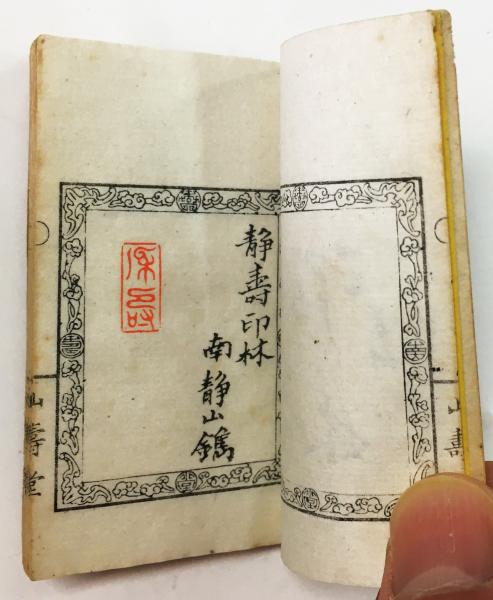 静壽印林
南静山鐫
山壽堂
山壽